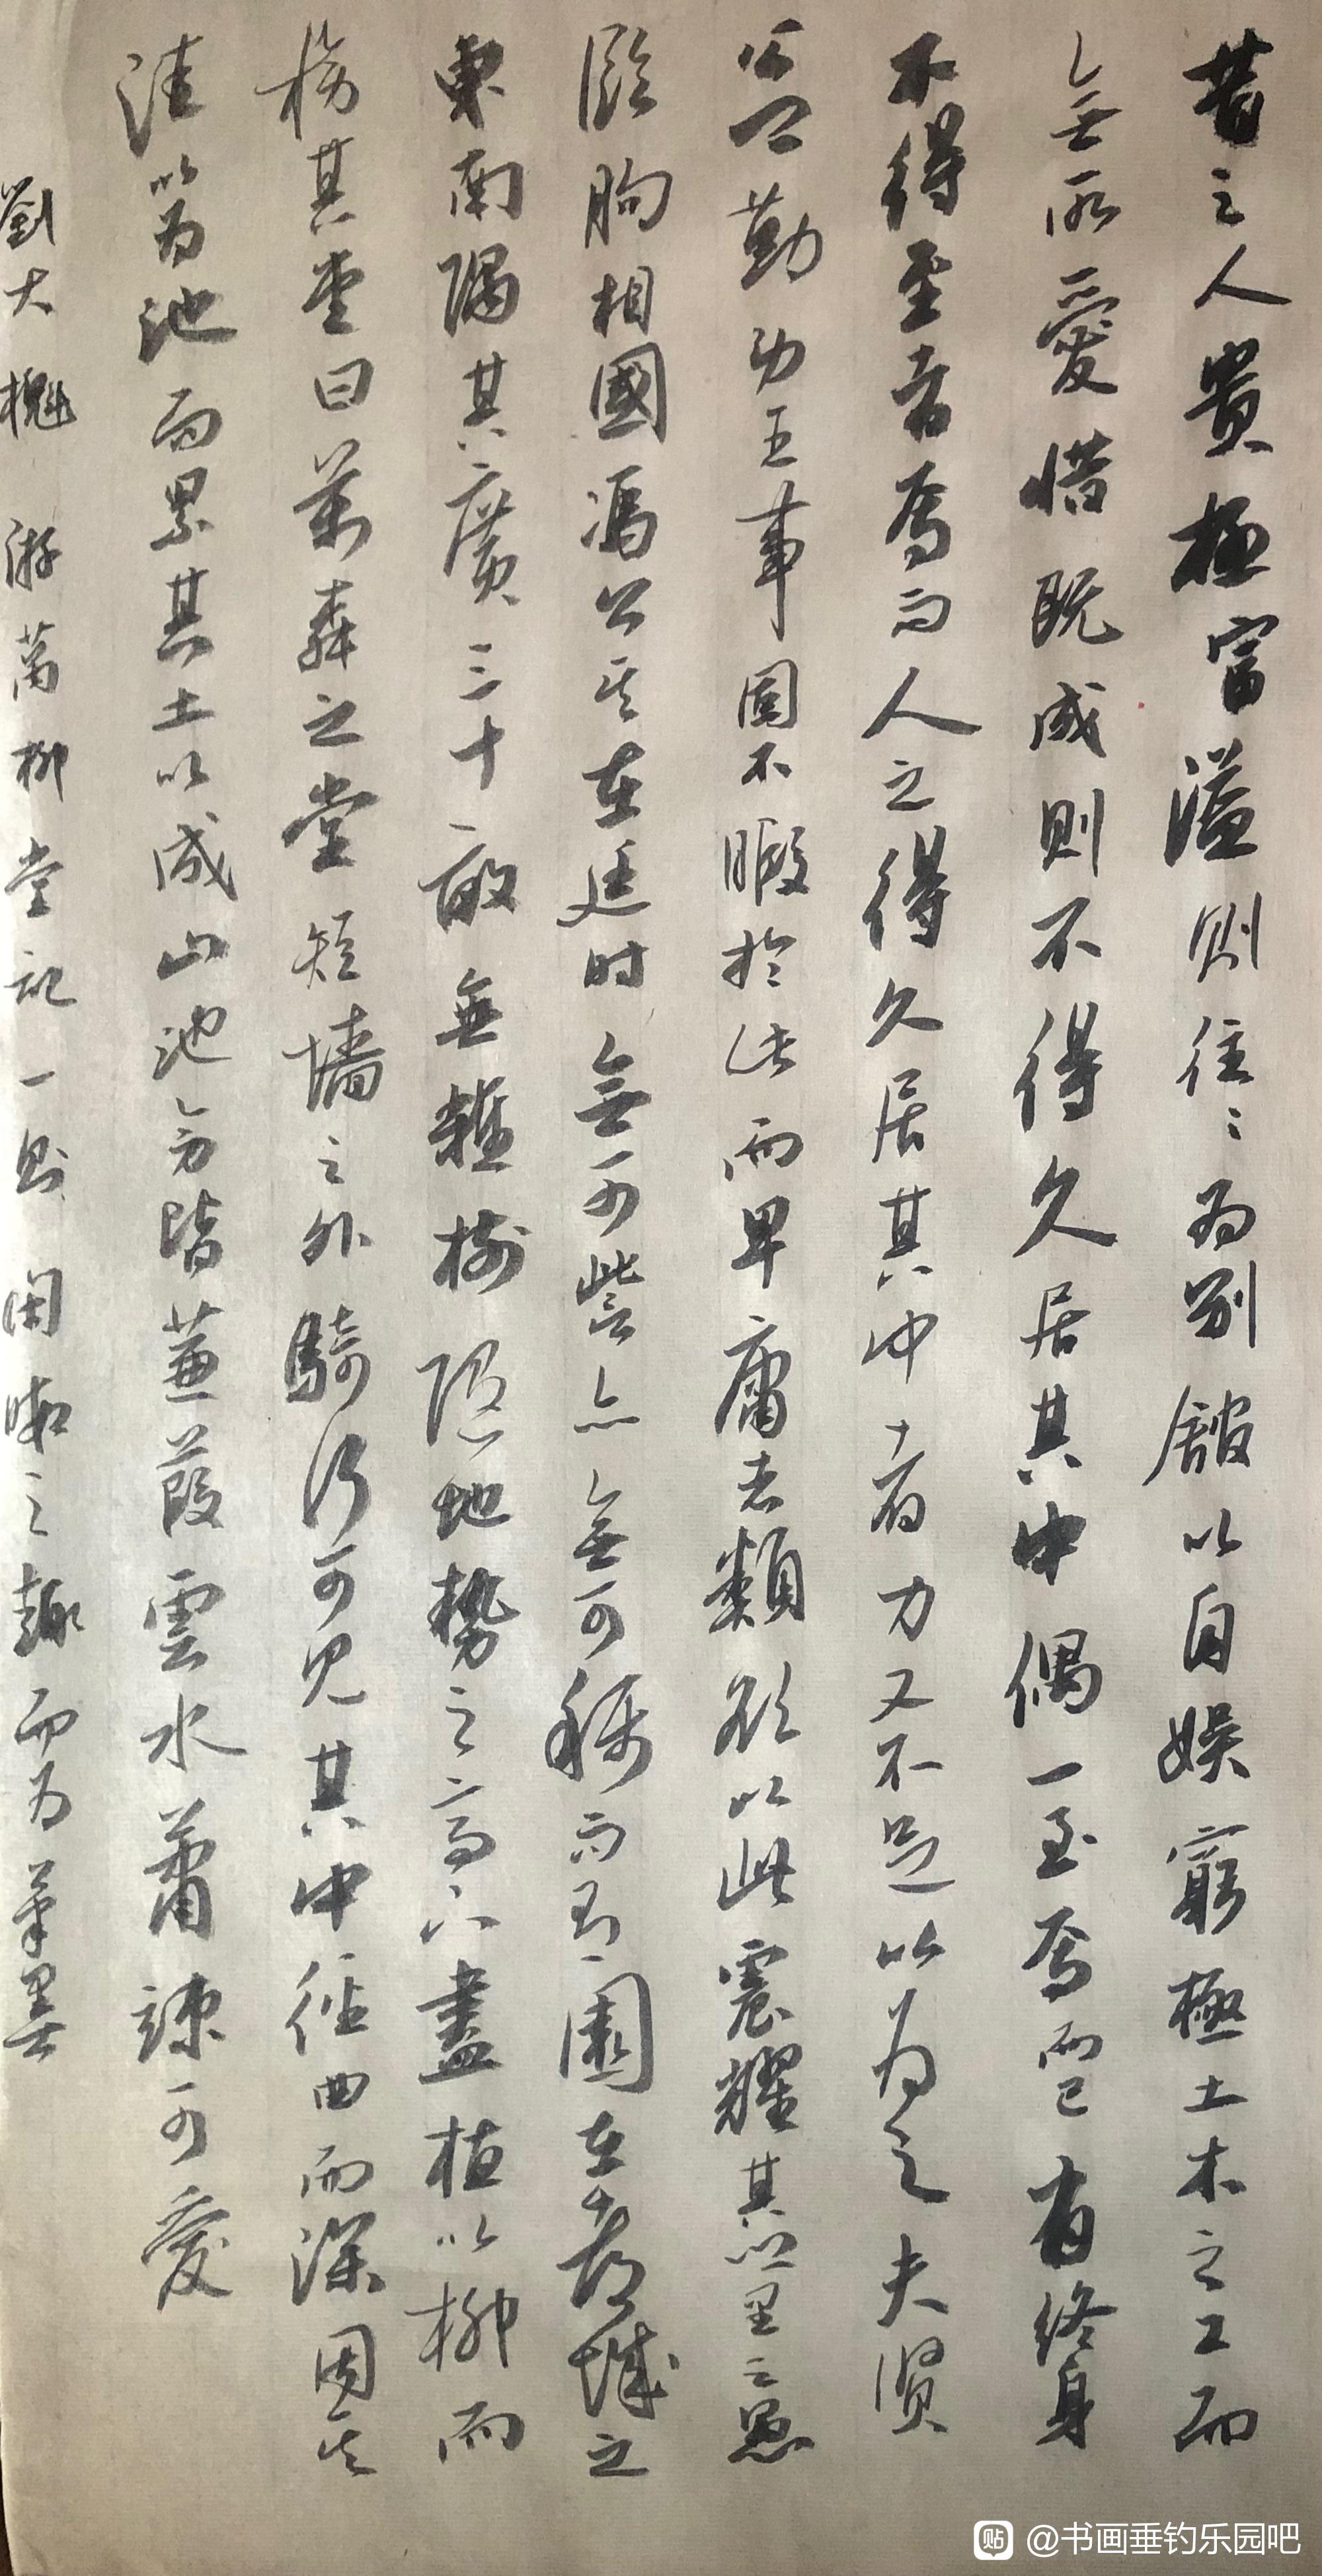 昔之人貴極富溢則往〻為別館以自娛窮極土木之工而
無所愛惜既成則不得久居其中偶一至焉而已有終身
不得至者焉而人之得久居其中者力又不足以為之夫賢
公卿勤勞王事固不暇於此而卑庸者類欲以此震耀其鄉里之愚
臨朐相國馮公其在廷時無可訾亦無可稱而有園在都城之
東南隅其廣三十畝無雜樹隨地勢之高下盡植以柳而
榜其堂曰萬柳之堂短墻之外騎行可見其中徑曲而深因其
洼以為池而累其土以成山池旁皆蒹葭雲水蕭疎可愛
劉大櫆 游萬柳堂記一則 閑暇之趣而為筆墨
@书画垂钓乐园吧